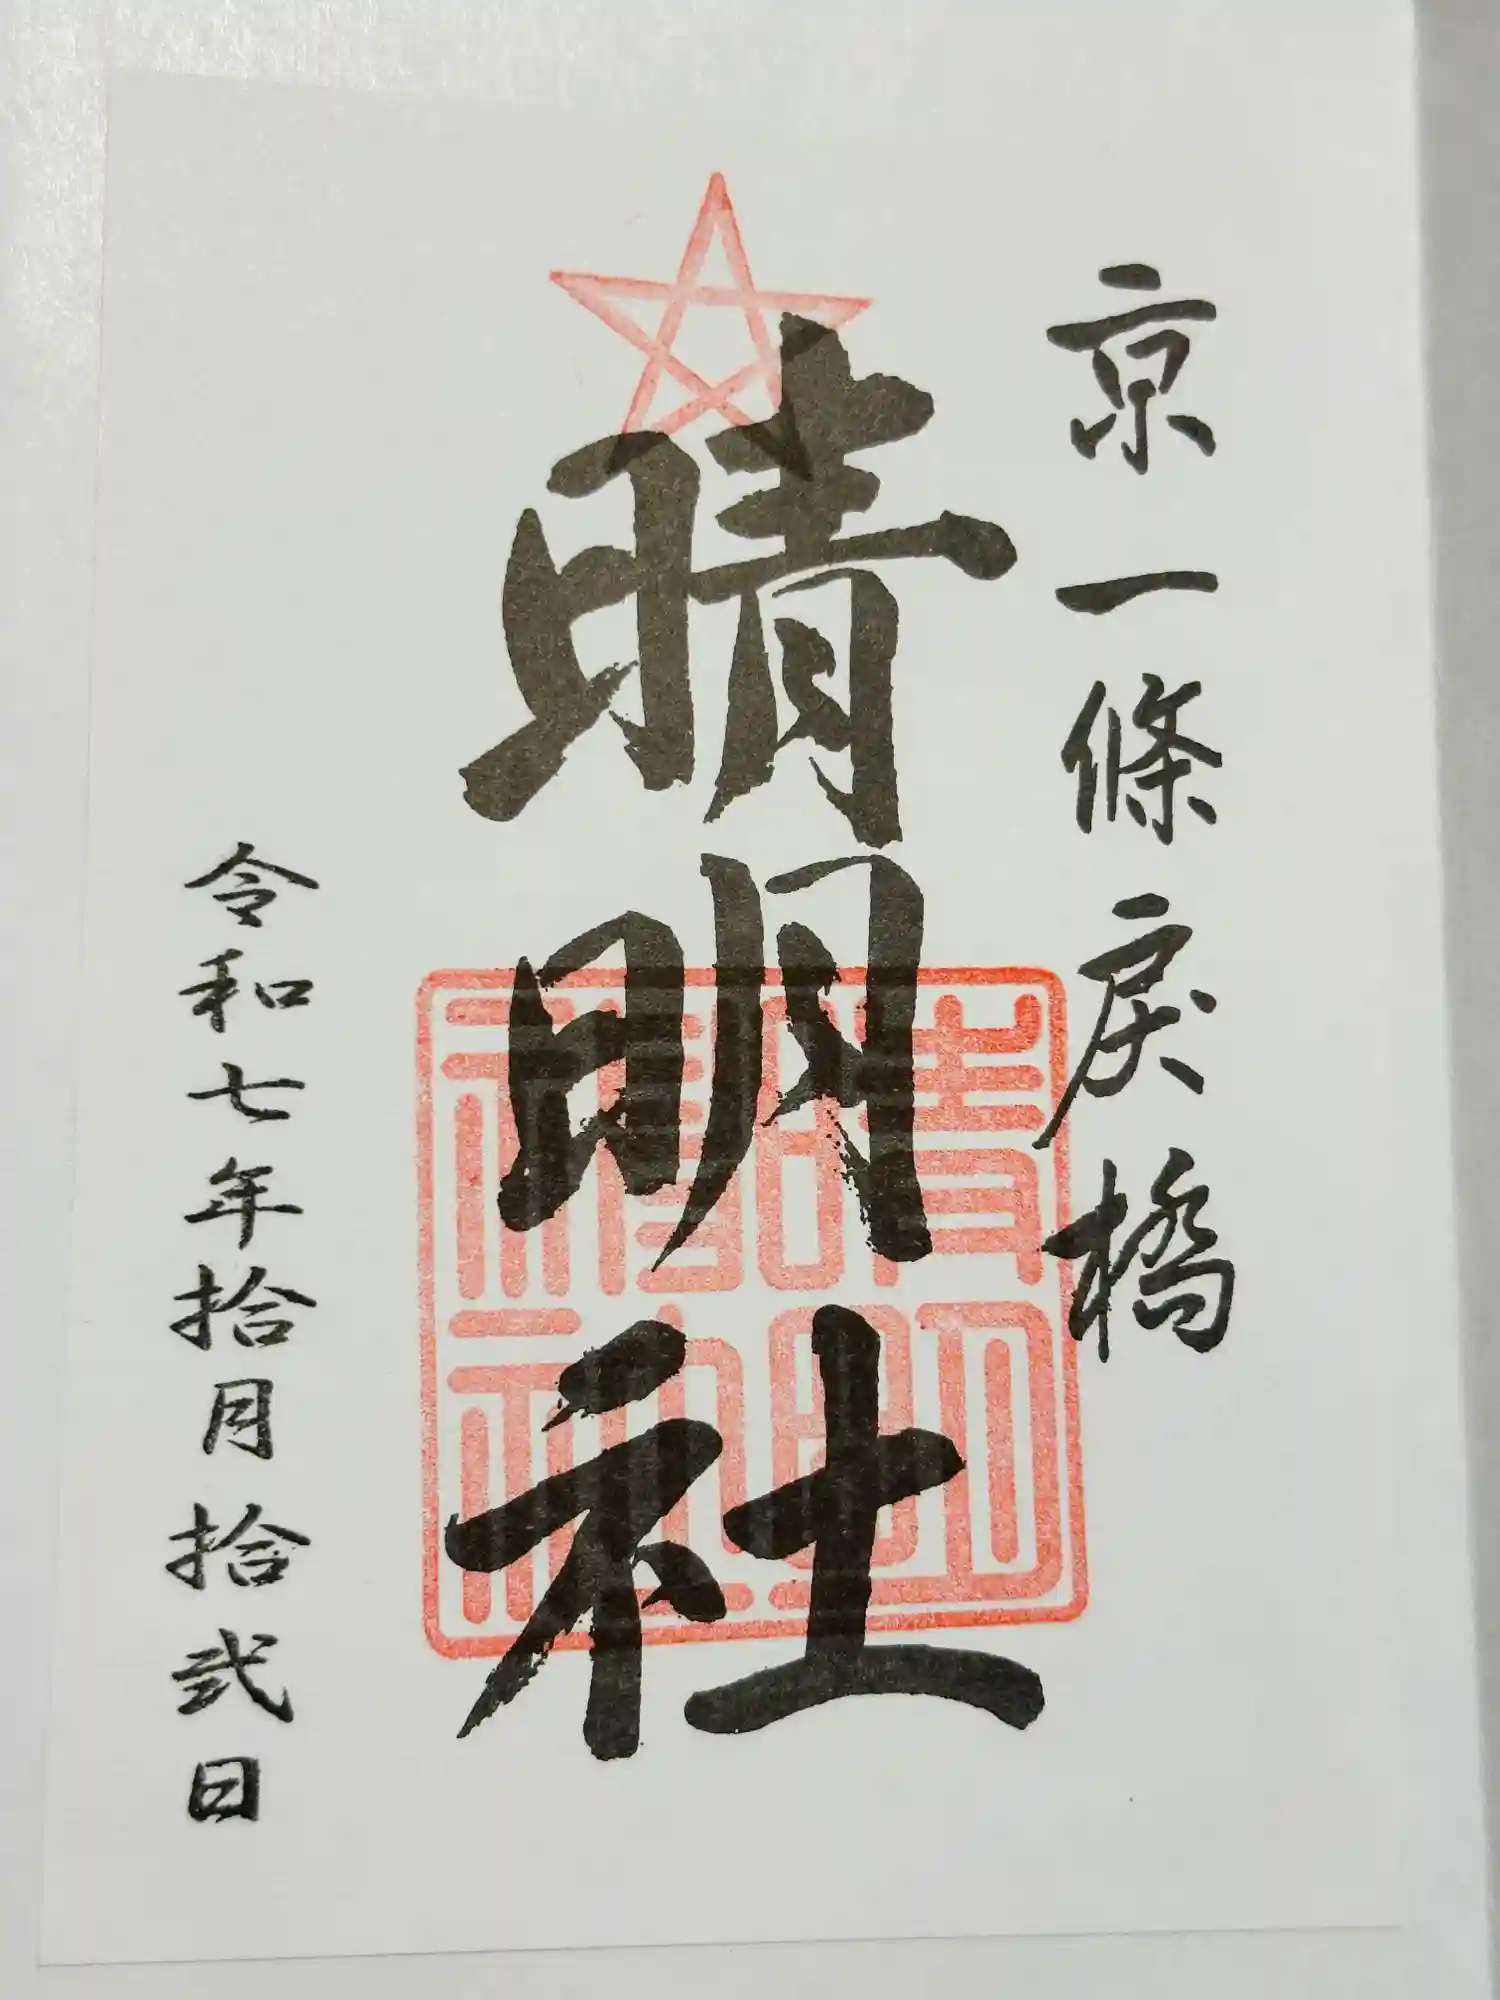 京一條戻橋
晴明社
晴明
神社
令和七年拾月拾弐日